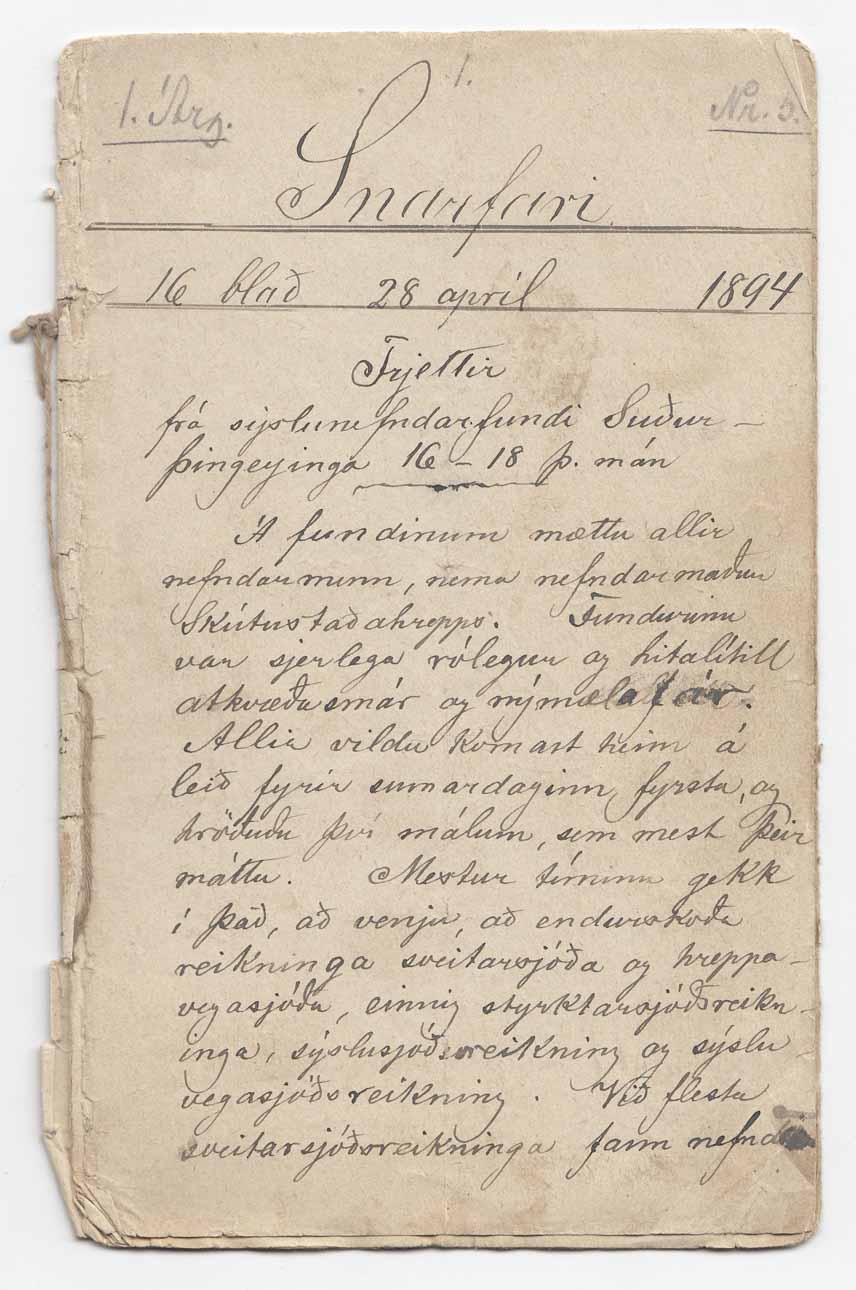 1.
1. Árg.
Nr. 5.
Snarfari
16 blað 28 apríl 1894
Frjettir
frá sýslunefndarfundi Suður-
þingeyinga 16-18 þ. mán
Á fundinum mættu allir
nefndarmenn, nema nefndarmaður
Skútustaðahrepps. Fundurinn
var sjerlega rólegur og hitalítill
atkvæðasmár og nýmælafár.
Allir vildu komast heim á
leið fyrir sumardaginn fyrsta, og
hröðuðu því málum, sem mest þeir
máttu. Mestur tíminn gekk
í það, að venju, að endurskoða
reikninga sveitarsjóða og hreppa-
vegasjóða, einnig styrktarsjóðsreikn-
inga, sýslusjóðsreikning og sýslu
vegasjóðsreikning. Við flesta
sveitarsjóðsreikninga fann